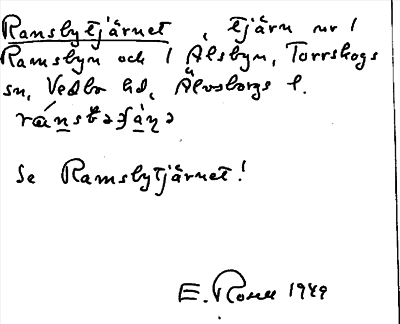 Ransbytjärnet, tjärn nr 1
Ramsbyn och 1 Ålsbyn, Torrskogs
sn, Vedbo hd, Älvsborgs l.
Se Ramsbytjärnet!
E. Rosell 1949